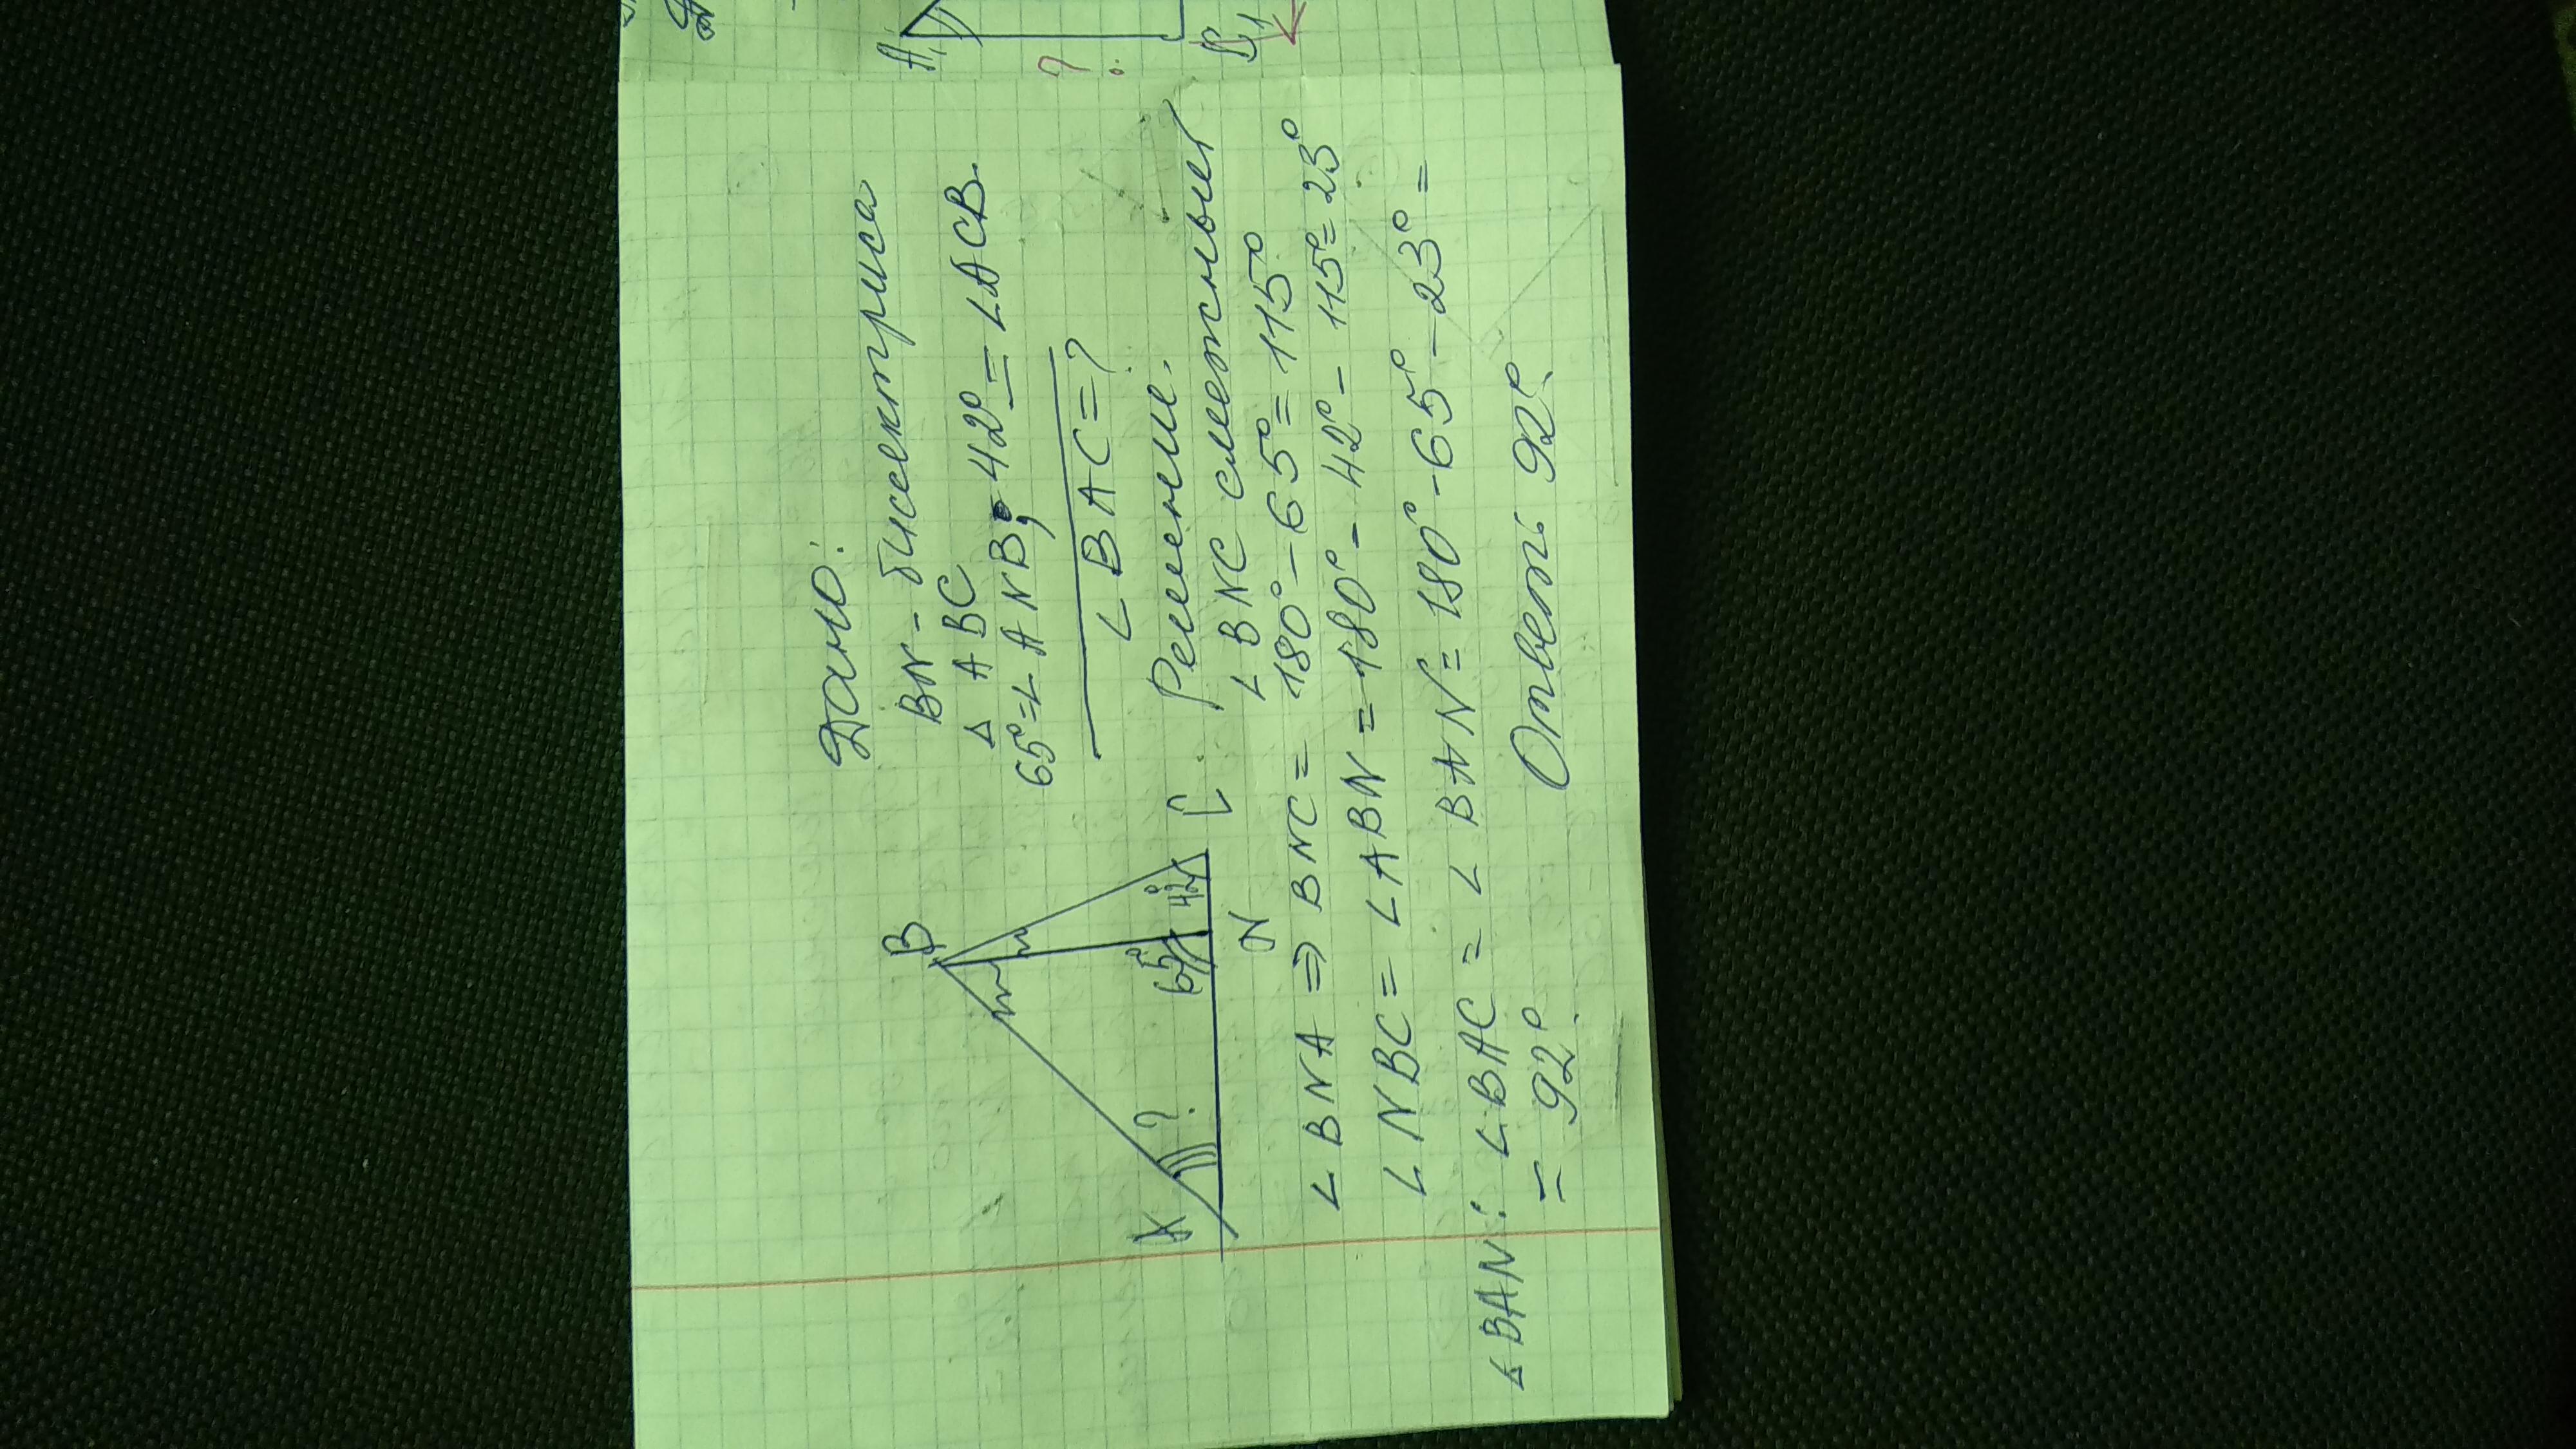 A₁
?
B₁
Дано:
BN - биссектриса
Δ ABC
65°=∠ANB, 42°=∠ACB.
∠BAC=?
B
65°
42°
A
?
N
C
Решение.
∠BNC смежный
∠BNA ⇒ BNC = 180°-65°=115°
∠NBC=∠ABN=180°-42°-115°=23°
ΔBAN: ∠BAC=∠BAN=180°-65°-23°=
=92°
Ответ: 92°.